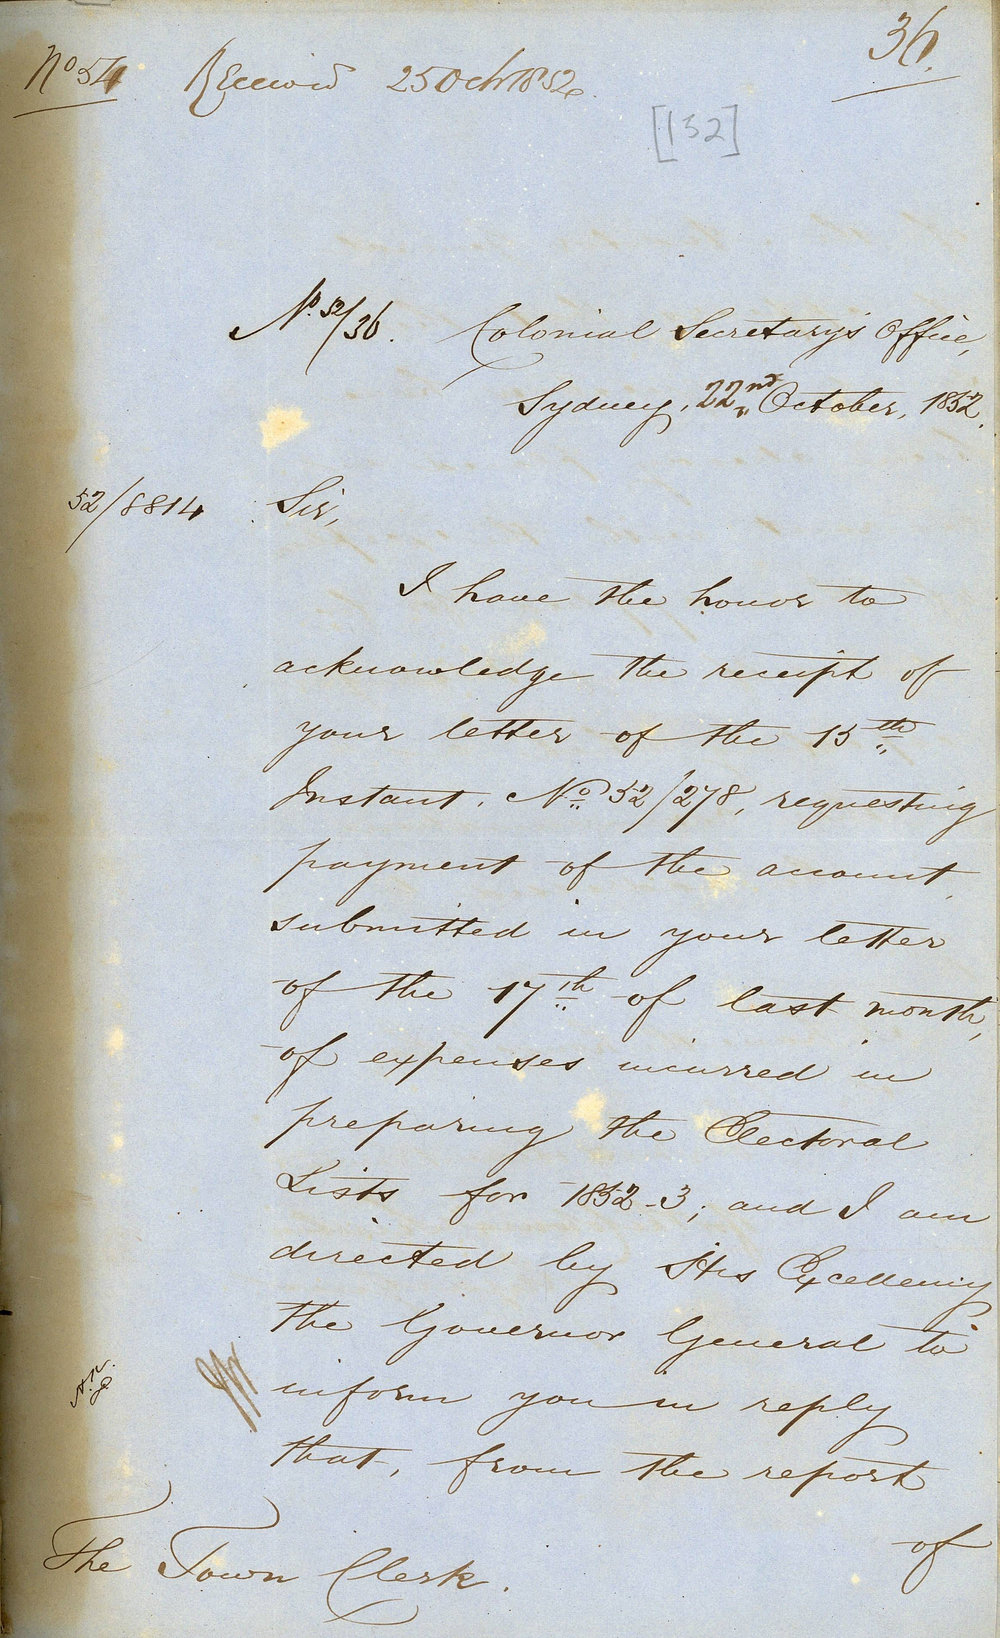 No 54 Received 25 Oct 1852
36.
[132]
No. 52/36. Colonial Secretary's Office,
Sydney, 22nd October, 1852.
52/8814 Sir,
I have the honor to
acknowledge the receipt of
your letter of the 15th
Instant, No 52/278, requesting
payment of the account
submitted in your letter
of the 17th of last month,
of expenses incurred in
preparing the Electoral
Lists for 1852-3; and I am
directed by His Excellency
the Governor General to
inform you in reply
that, from the report
of
The Town Clerk.